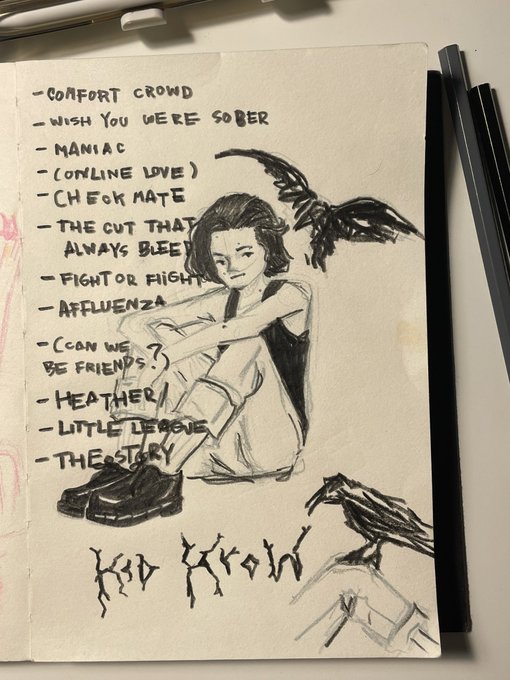 - COMFORT CROWD
- WISH YOU WERE SOBER
- MANIAC
- (ONLINE LOVE)
- CHECK MATE
- THE CUT THAT
ALWAYS BLEED
- FIGHT OR FLIGHT
- AFFLUENZA
- (CAN WE
BE FRIENDS?)
- HEATHER
- LITTLE LEAGUE
- THE STORY
KID KROW